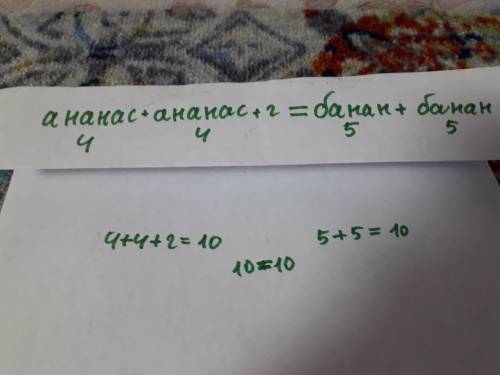 ананас + ананас + 2 = банан + банан
4 4 5 5
4+4+2=10 5+5=10
10=10